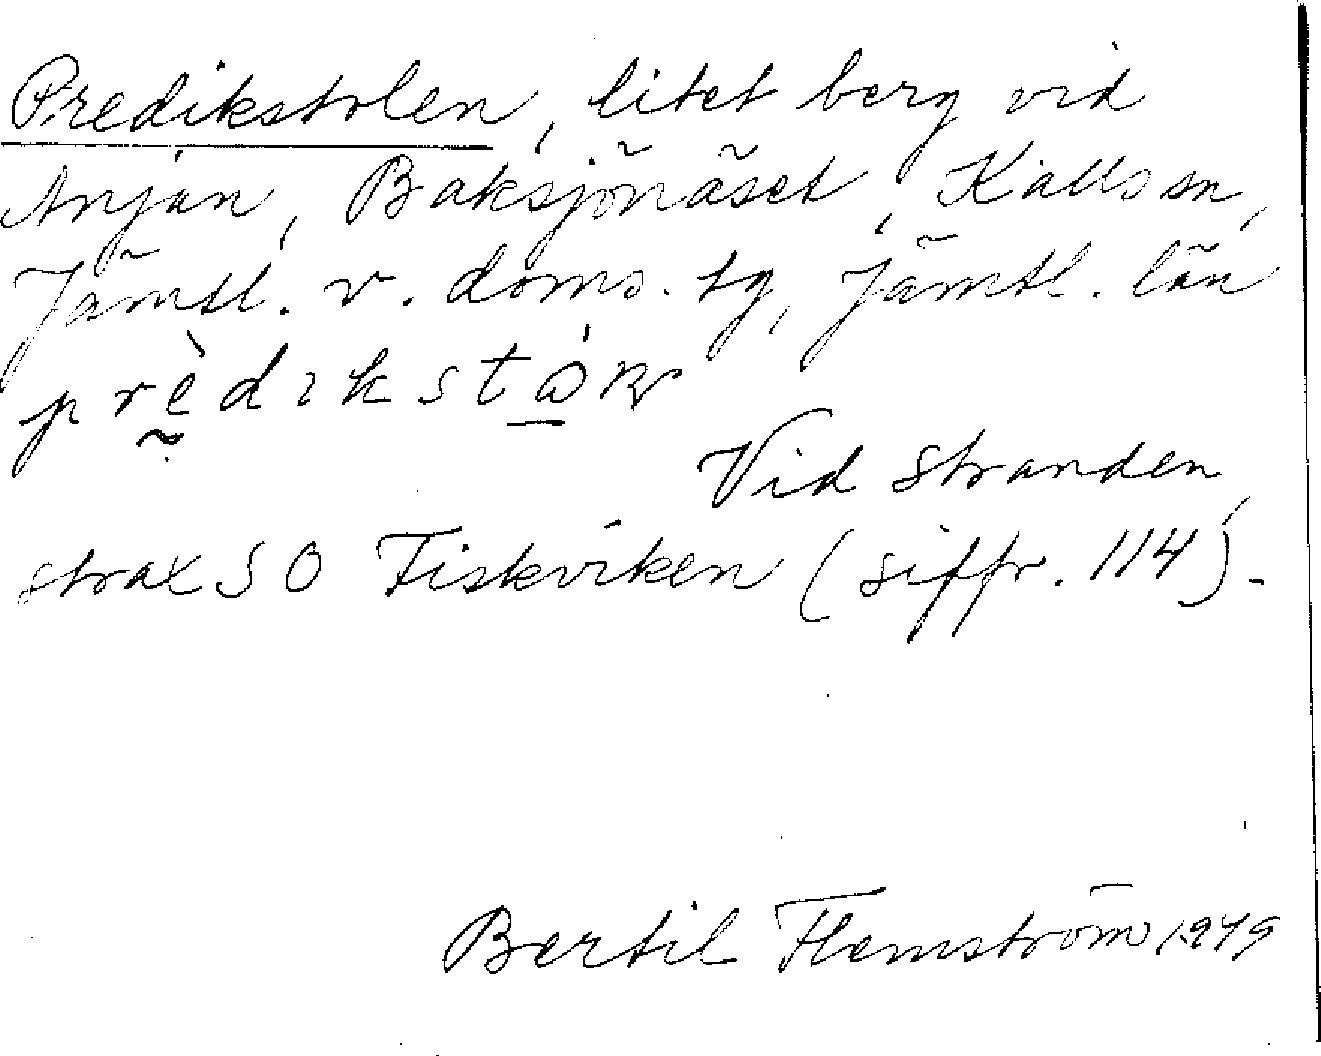 Predikstolen, litet berg vid
Anjan, Baksjönäset, Kalls sn,
Jämtl. v. doms. tg, Jämtl. län
Vid stranden,
strax SO Fiskviken (siffr. 114).
Bertil Flemström 1949